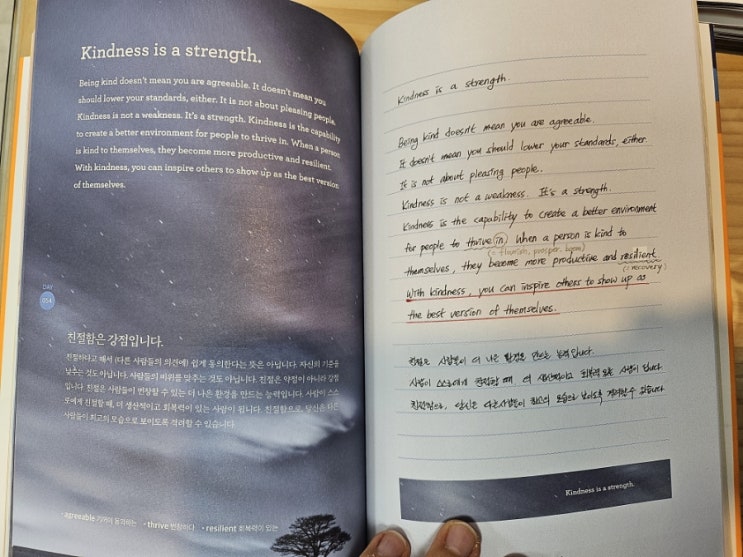 Kindness is a strength.
Being kind doesn't mean you are agreeable. It doesn't mean you
should lower your standards, either. It is not about pleasing people.
Kindness is not a weakness. It's a strength. Kindness is the capability
to create a better environment for people to thrive in. When a person
is kind to themselves, they become more productive and resilient.
With kindness, you can inspire others to show up as the best version
of themselves.
DAY
054
친절함은 강점입니다.
친절하다고 해서 (다른 사람들의 의견에) 쉽게 동의한다는 뜻은 아닙니다. 자신의 기준을
낮추는 것도 아닙니다. 사람들의 비위를 맞추는 것도 아닙니다. 친절은 약점이 아니라 강점
입니다. 친절은 사람들이 번창할 수 있는 더 나은 환경을 만드는 능력입니다. 사람이 스스
로에게 친절할 때, 더 생산적이고 회복력이 있는 사람이 됩니다. 친절함으로, 당신은 다른
사람들이 최고의 모습으로 보이도록 격려할 수 있습니다.
• agreeable 기꺼이 동의하는 • thrive 번창하다 • resilient 회복력이 있는
Kindness is a strength.
Being kind doesn't mean you are agreeable.
It doesn't mean you should lower your standards, either.
It is not about pleasing people.
Kindness is not a weakness. It's a strength.
Kindness is the capability to create a better environment
for people to thrive in. When a person is kind to
(= flourish, prosper, boom)
themselves, they become more productive and resilient.
(: recovery)
With kindness, you can inspire others to show up as
the best version of themselves.
친절은 사람들이 더 나은 환경을 만드는 능력입니다.
사람이 스스로에게 친절할 때 더 생산적이고 회복력 있는 사람이 됩니다.
친절함으로, 당신은 다른사람들이 최고의 모습으로 보이도록 격려할 수 있습니다.
Kindness is a strength.